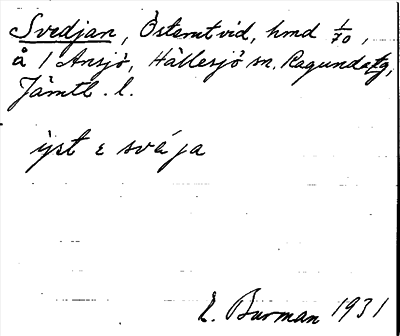 Svedjan, Östomtvid, hmd 1/70,
å 1 Ansjö, Hällesjö sn. Ragunda tg,
Jämtl. l.
yst e svéja
E. Burman 1931